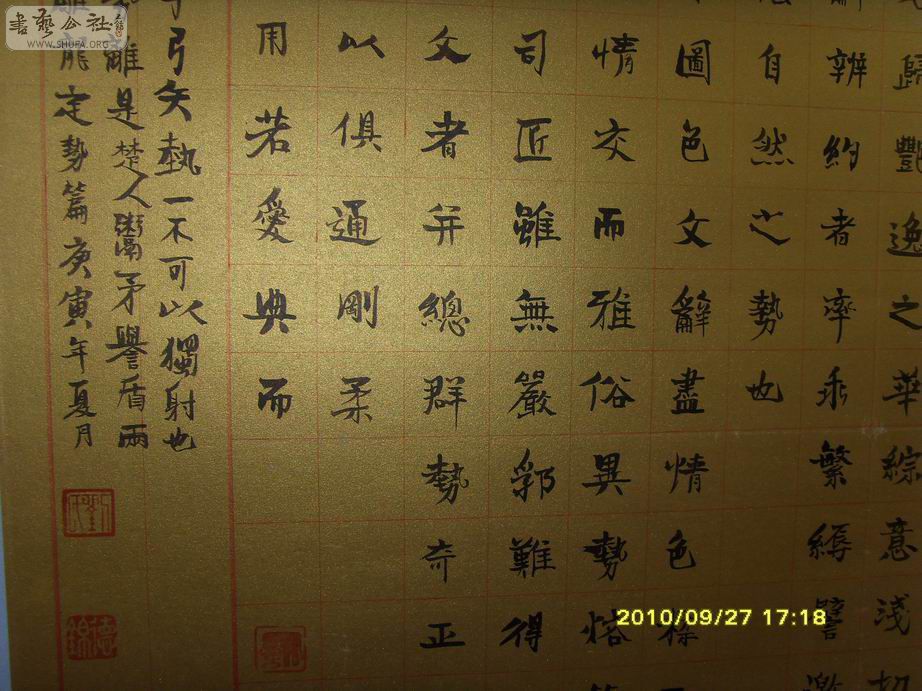 書藝公社
WWW.SHUFA.ORG
歸豔逸之華綜意淺切
辨約者率乖繁縟譬激
自然之勢也
圖色文辭盡情色糅
情交而雅俗異勢鎔
司匠雖無嚴郛難得
文者并總群勢奇正
以俱通剛柔
用若愛典而
弓矢執一不可以獨射也
雖是楚人鬻矛譽盾兩
龍定勢篇庚寅年夏月
2010/09/27 17:18